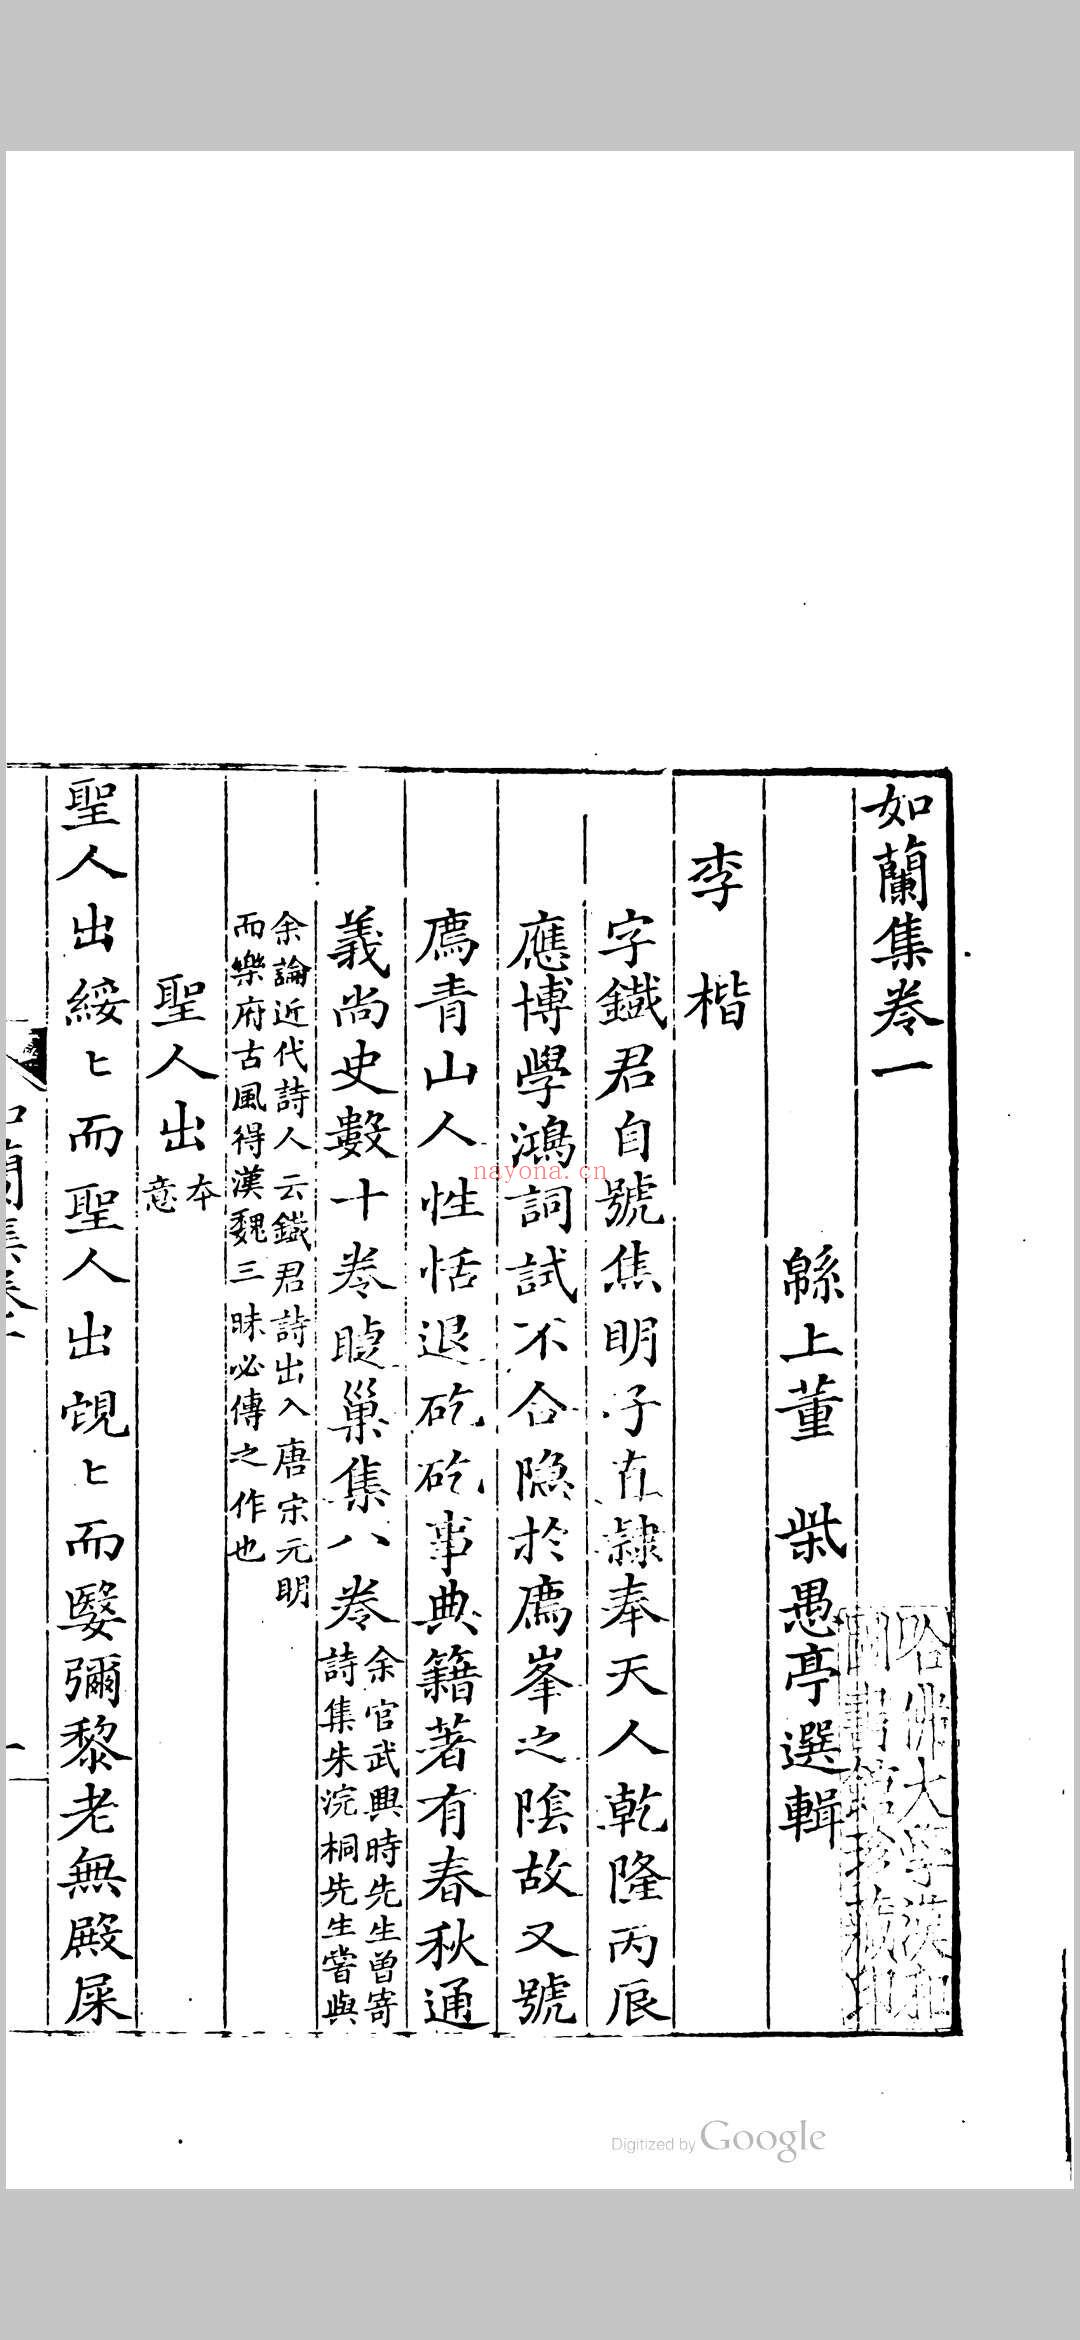 如蘭集卷一
緜上董　柴愚亭選輯
李　楷
字鐵君自號焦明子直隸奉天人乾隆丙辰
應博學鴻詞試不合隐於廌峯之陰故又號
廌青山人性恬退矻矻事典籍著有春秋通
義尚史數十卷睫巢集八卷
余官武興時先生曽寄
詩集朱浣桐先生甞與
余論近代詩人云鐵君詩出入唐宋元明
而樂府古風得漢魏三昧必傳之作也
聖人出
本
意
聖人出綏㔾而聖人出㿽㔾而毉彌黎老無殿屎
哈佛大學漢和
圖書館珍藏印
如蘭集卷一
一
nayona.cn
Digitized by Google